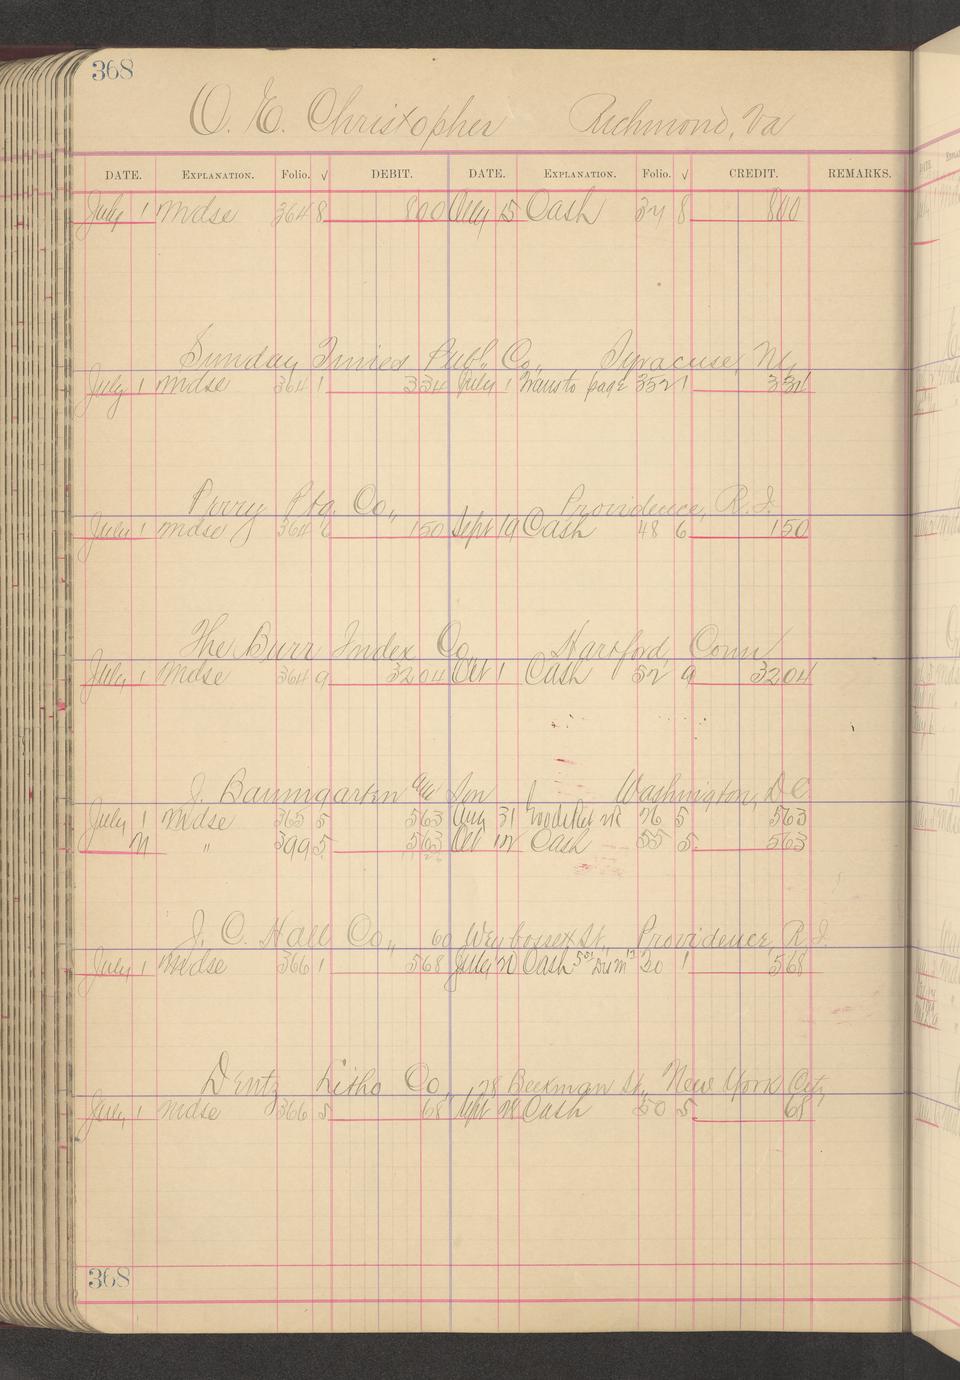 368
O. E. Christopher Richmond, Va
DATE. EXPLANATION. Folio. √ DEBIT. DATE. EXPLANATION. Folio. √ CREDIT. REMARKS.
July 1 Mdse 364 8 800 Aug 15 Cash 37 8 800
Sunday Times Publ. Co., Syracuse, Ny
July 1 Mdse 364 1 334 July 1 Trans to page 352 1 334
Perry Ptg. Co., Providence, R.I.
July 1 Mdse 364 6 150 Sept 19 Cash 48 6 150
The Burr Index Co., Hartford, Conn
July 1 Mdse 364 9 3204 Oct 1 Cash 52 9 3204
J. Baumgarten Son Washington, DC
July 1 Mdse 365 5 563 Aug 31 76 5 563
21 " 399 5 563 Oct 12 Cash 55 5 563
11 26
J. C. Hall Co., 60 Weybosset St., Providence, R.I.
July 1 Mdse 366 1 568 July 20 Cash 30 1 568
Dentz Litho Co., 28 Beekman St., New York City,
July 1 Mdse 366 5 68 Sept 28 Cash 50 5 68
368